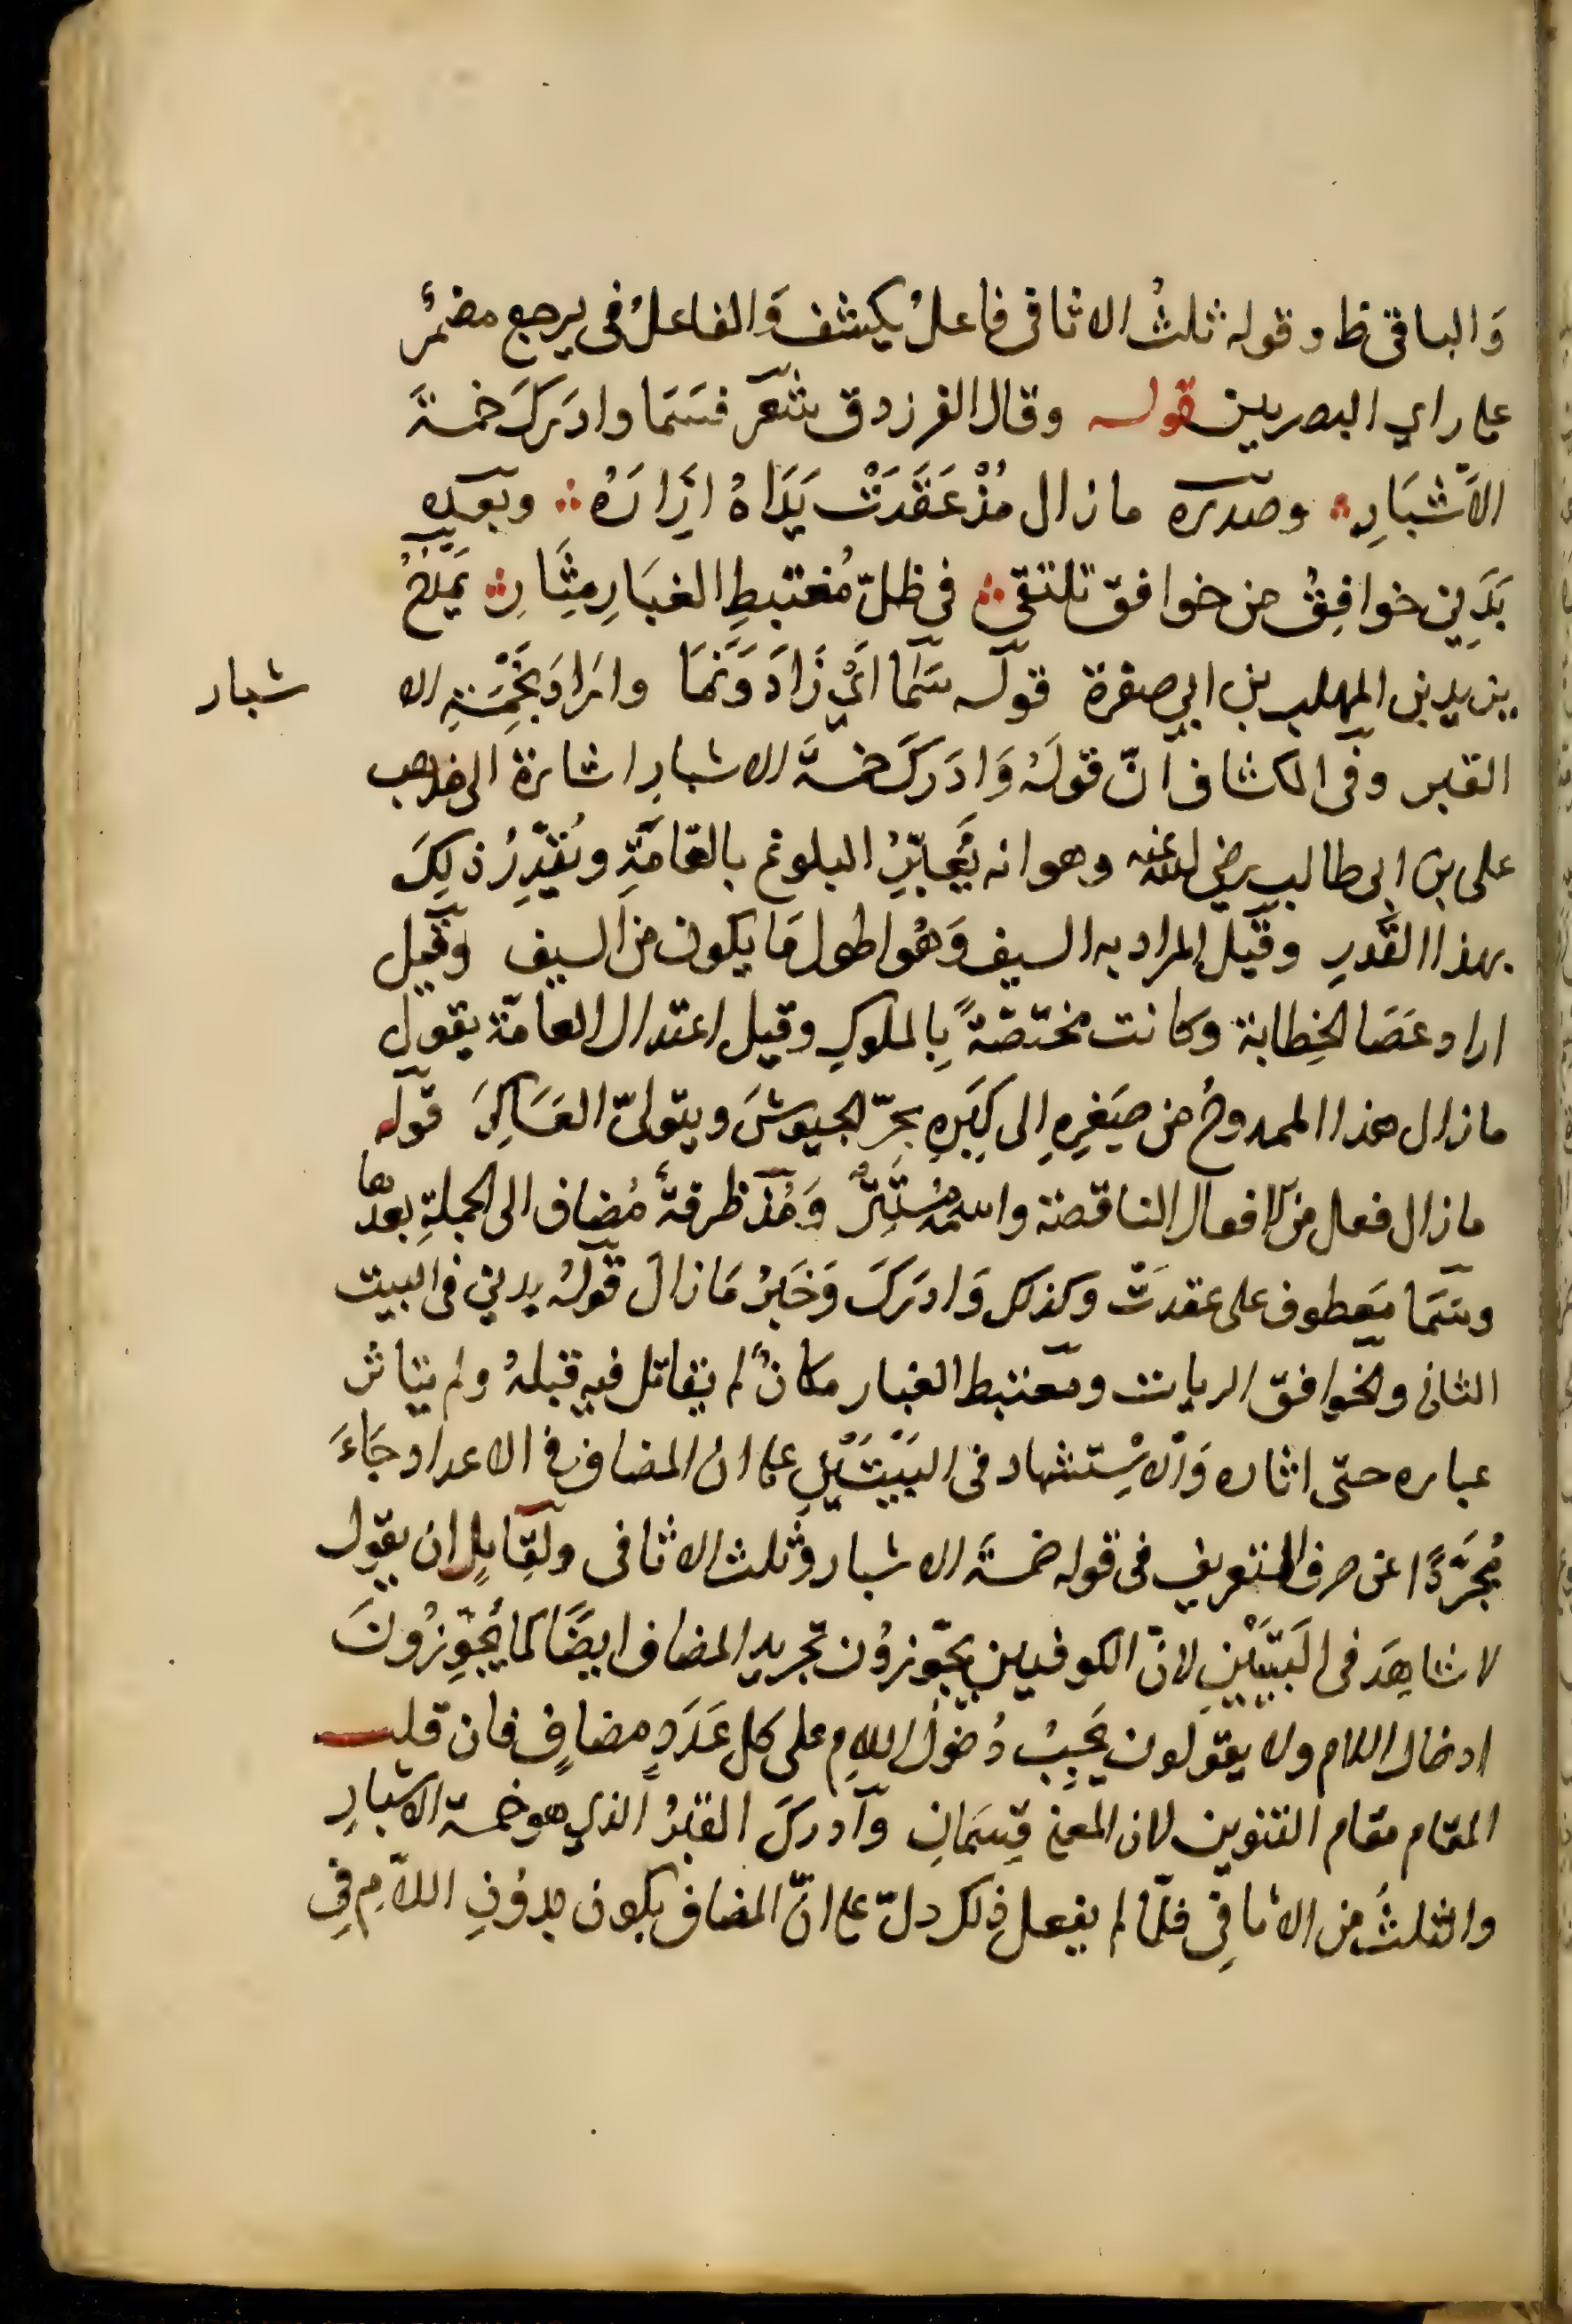 وَالباقى ظ وقوله ثلثُ الاثافى فاعلُ يكشف وَالفاعلُ فى يرجع مضمُر
على راى البصريين قوله وقال الفرزدق شعر فسَمَا وادَركَ خمسَة
الاَشبَارِ وصدره مازال مُذْعَقَدَتْ يَدَاهُ اِزَارَهُ وبعده
يُدنِى خوافِقُ من خوافق تلتقى فى ظلّ مُغتبطِ الغبَارِ مثَارِ يمدَحُ
يزيد بن المهلب بن ابى صفرة قوله سَمَا اَىْ زَادَ وَنَمَا وارَادَ بخَمْسَةِ الا شبار
القبر وفى الكشاف انّ قولَهُ وَادَركَ خمسَةَ الاشبارِ اشارة الى مذهب
على بن ابى طالب رضى الله عنه وهو انه يُعَبّرُ البلوغ بالقامَةِ ويُقَدِّرُ ذلِكَ
بهذا القَدرِ وقيل المراد به السيف وَهُو اطول مَا يكون من السيف وقيل
اراد عَصَا الخِطابة وكانت مختصّةً بِالملوكِ وقيل اعتدال القامَة يقول
مازال هذا الممدوحُ من صِغرِهِ الى كِبَرِهِ يجرّ الجيوشَ ويتولىّ العَسَاكِرَ قوله
مازال فعل من الافعال الناقصة واسمه مُستَتِرٌ وَمُذ ظرفةٌ مُضاف الى الجملةِ بعدها
وسَمَا مَعطوف على عقدَتْ وكذلك وَادرَكَ وَخَبرُ مَازالَ قولُهُ يدنى فى البيت
الثانى والخوافق الرايات ومعتبط الغبار مكانٌ لم يقاتل فيه قبلهُ ولم يتاثر
غباره حتى اثاره وَالاِسْتشهاد فى البَيْتَيْنِ على ان المضاف فى الاعداد جَاءَ
مُجَرَّدًا عن حرف التعريف فى قوله خمسَة الاشبار وثلث الاثافى ولقايلٍ ان يقول
لا شاهِدَ فى البَيْتَيْنِ لانّ الكوفيين يجّوزوُن تجريد المضاف ايضًا كما يُجَوِّزُونَ
ادخال اللام ولا يقولون يَجِبُ دُخُولُ اللامِ على كل عَدَدٍ مضافٍ فان قلت
المقام مقام التنوين لان المعنى قِسمَانِ وادركَ القبرُ الذى هو خمسة الاشبارِ
والثلثُ من الاثافِى فلمّا لم يفعل ذلك دلّ على انّ المضاف يكون بدوُنِ اللاّمِ فِى